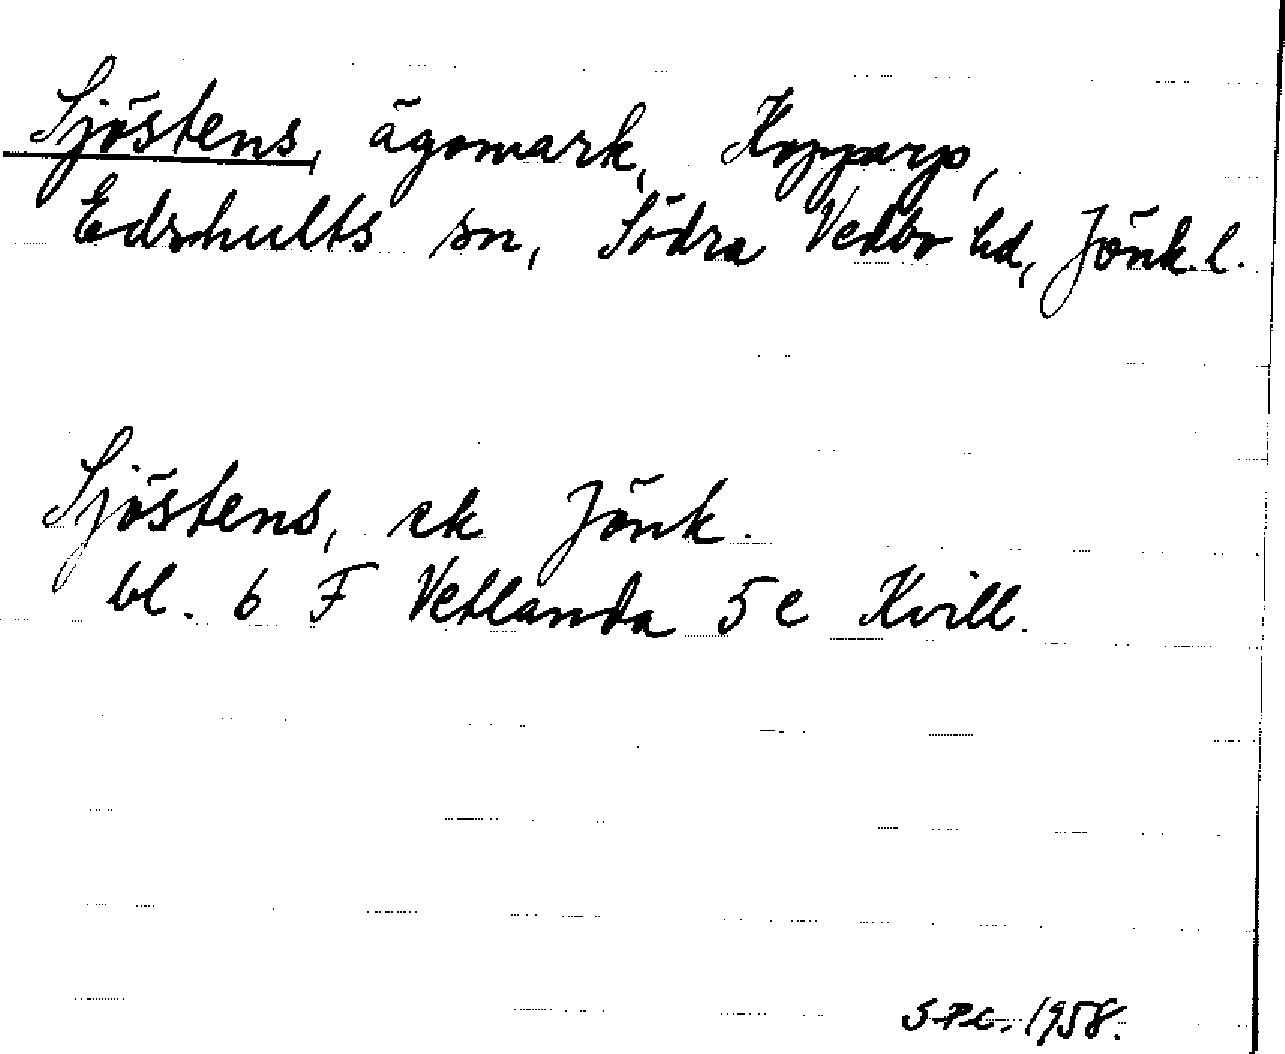 Sjöstens, ägomark, Kopparp,
Edshults sn, Södra Vedbo hd, Jönk. l.
Sjöstens, ek Jönk.
bl. 6 F Vetlanda 5 e Kvill.
S.P.C. 1958.